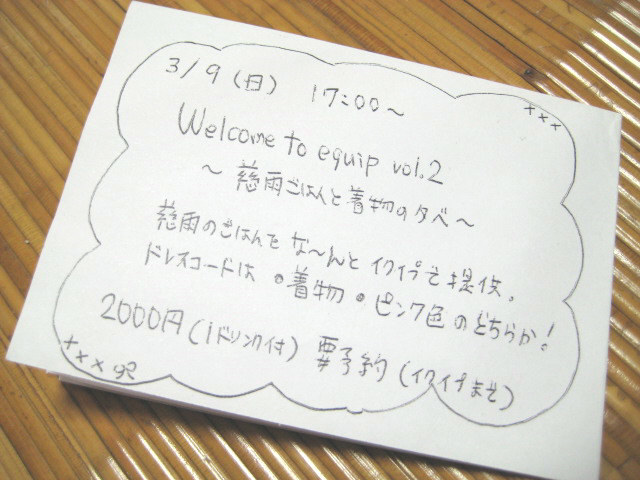 3/9(日) 17:00~
Welcome to equip vol.2
~慈雨ごはんと着物の夕べ~
慈雨のごはんを な~んと イクイプで提供。
ドレスコードは ・着物・ピンク色 のどちらか!
2000円(1ドリンク付) 要予約(イクイプまで)